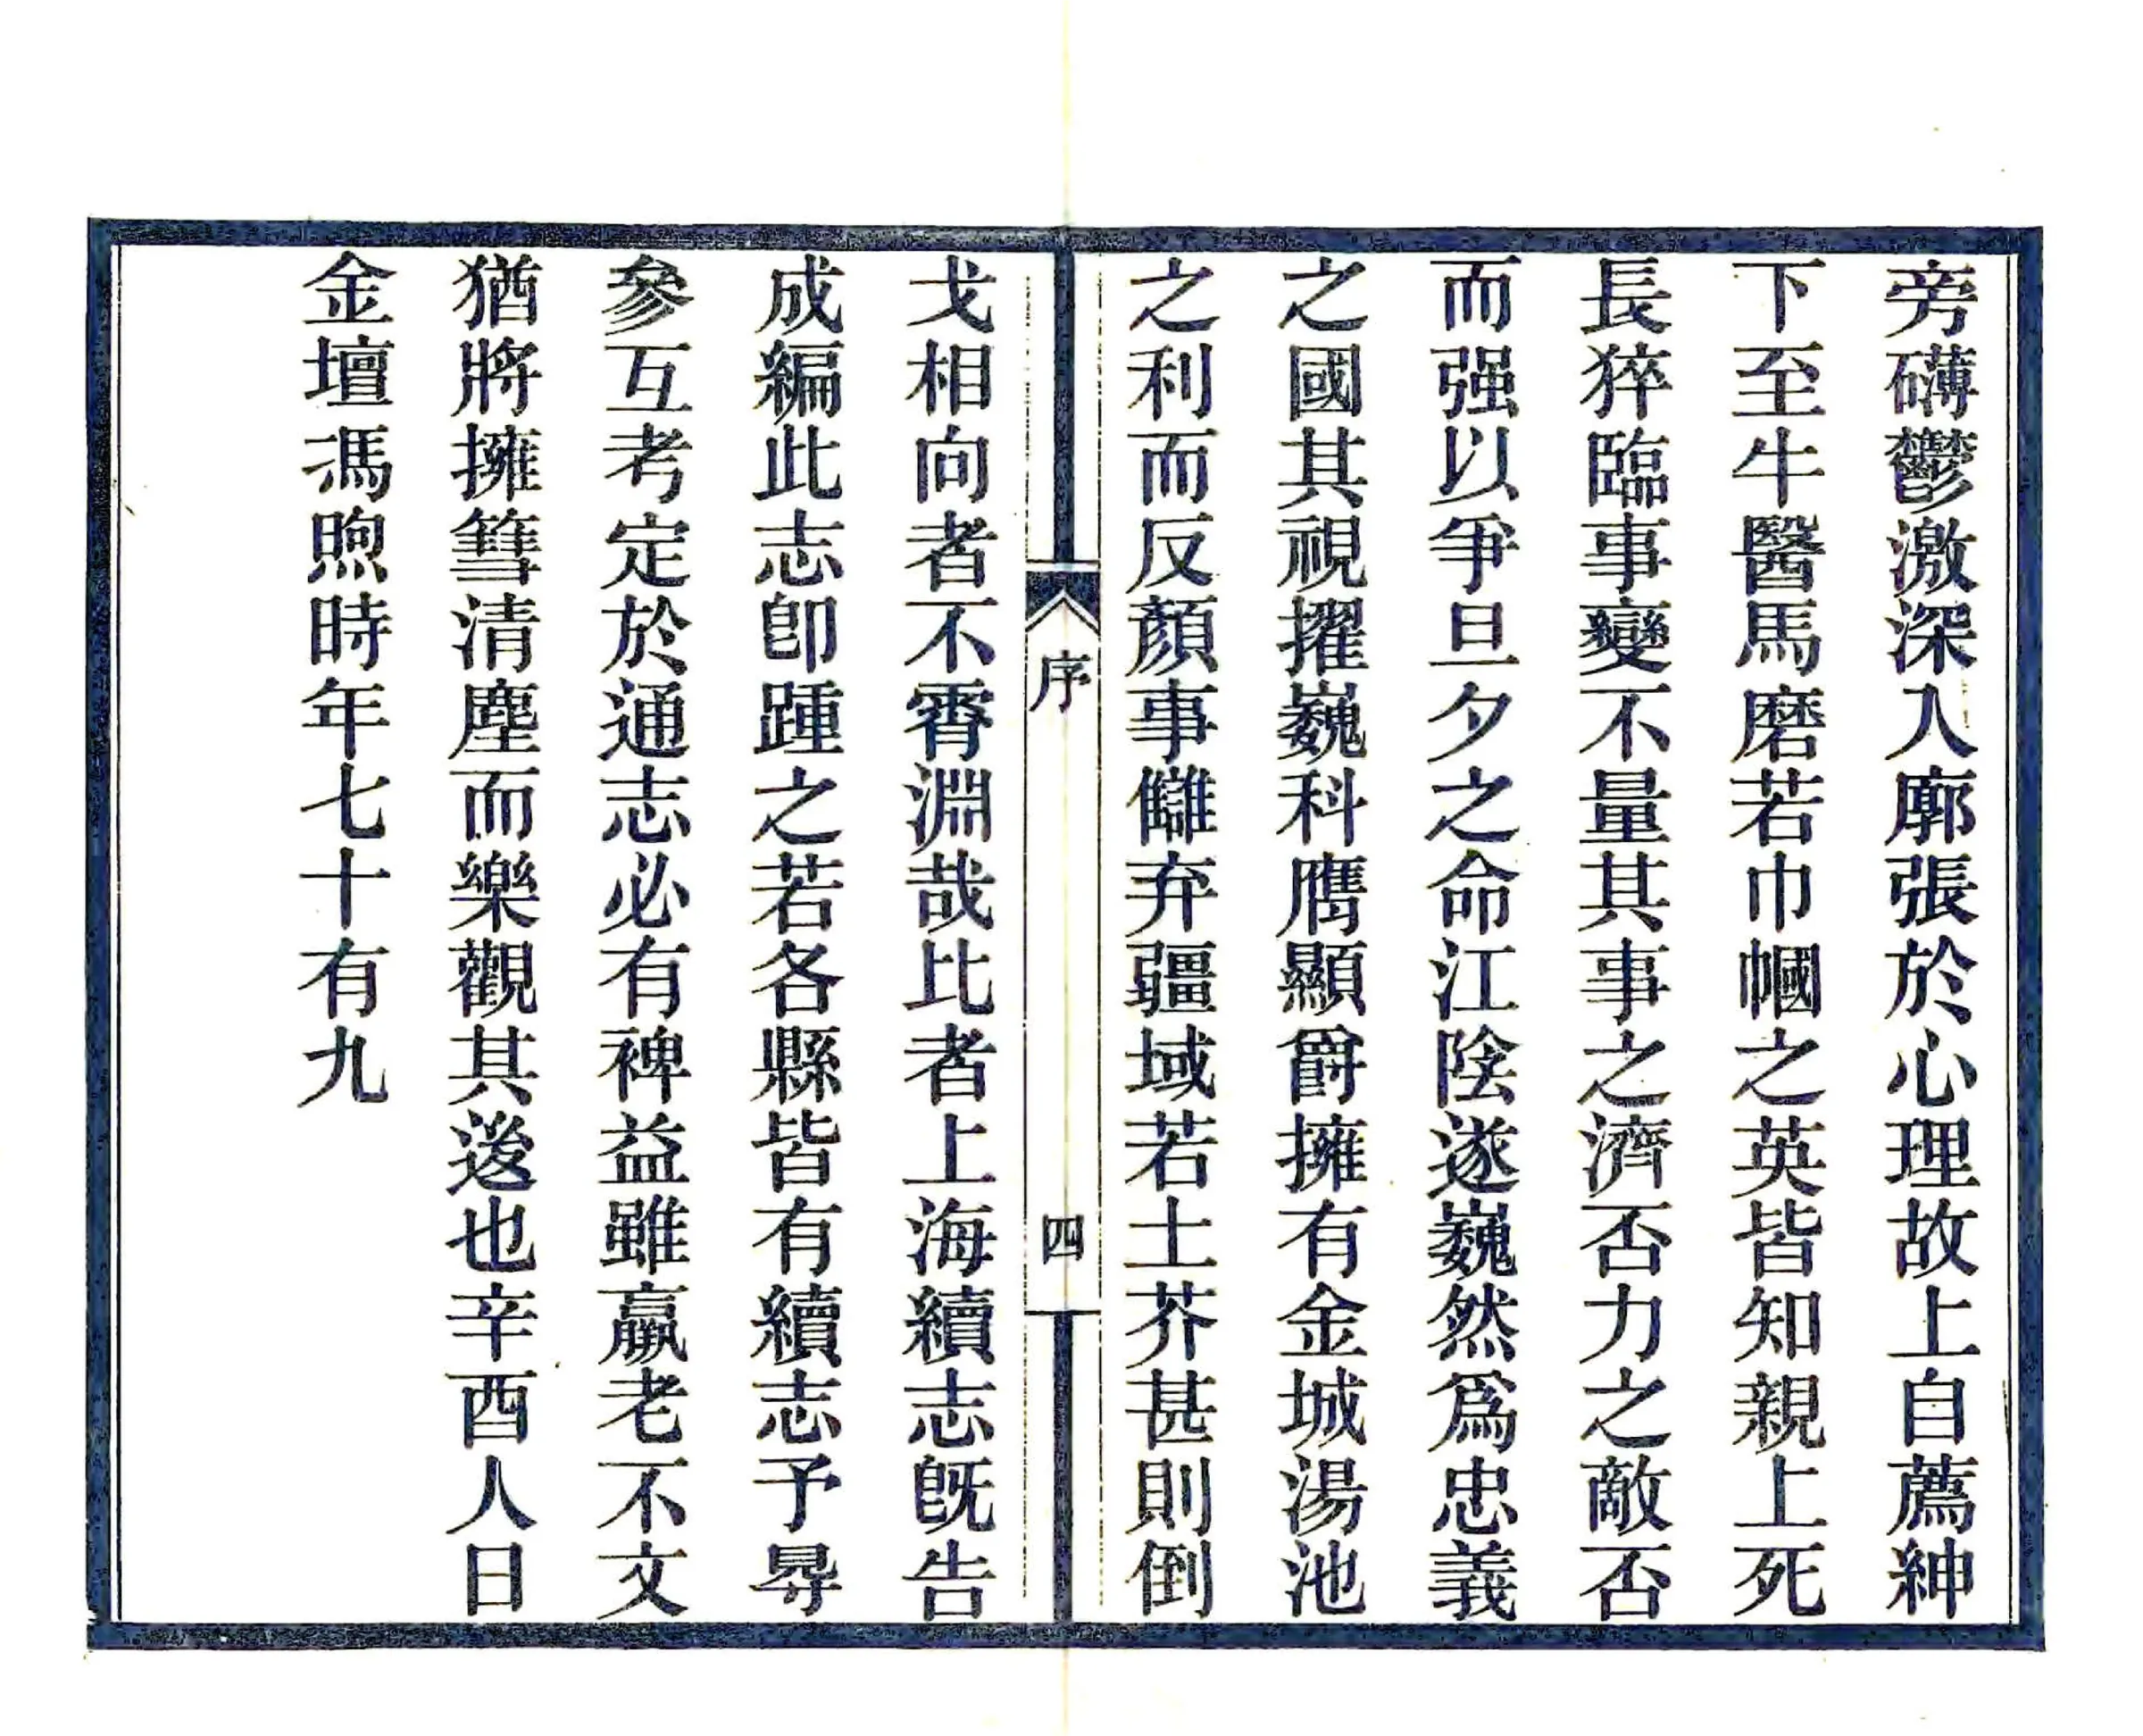 旁礴鬱激深入廓張於心理故上自薦紳
下至牛醫馬磨若巾幗之英皆知親上死
長猝臨事變不量其事之濟否力之敵否
而强以爭旦夕之命江陰遂巍然爲忠義
之國其視擢巍科膺顯爵擁有金城湯池
之利而反顏事讎弃疆域若土芥甚則倒
序
四
戈相向者不霄淵哉比者上海續志旣告
成編此志卽踵之若各縣皆有續志予㝷
參互考定於通志必有裨益雖羸老不文
猶將擁篲清塵而樂觀其後也辛酉人日
金壇馮煦時年七十有九